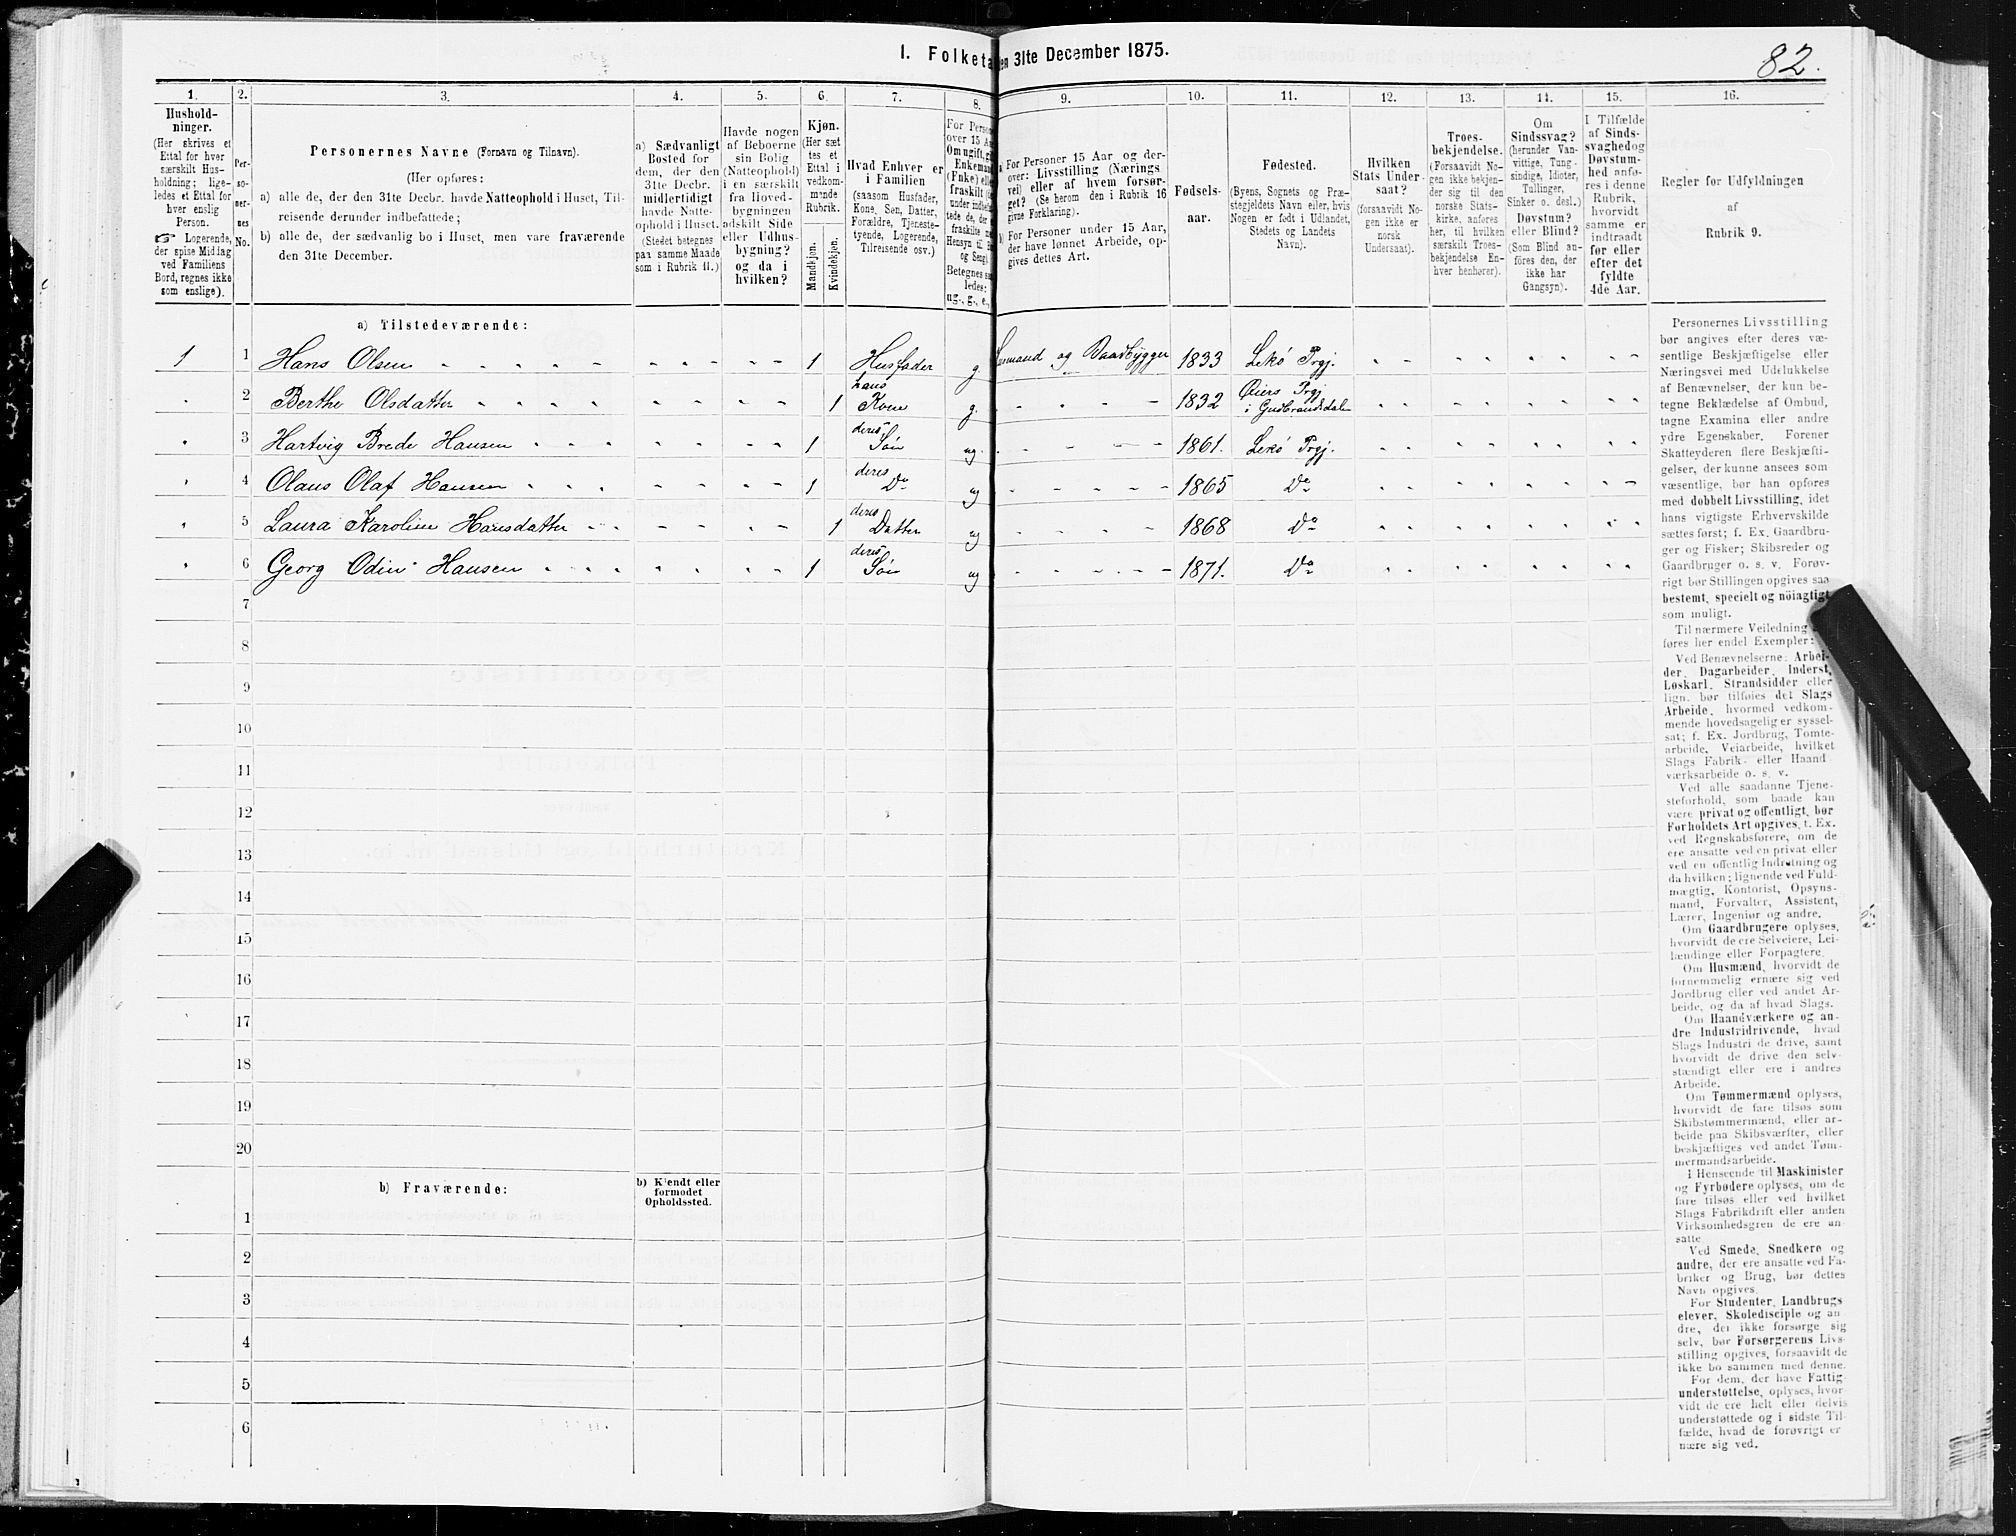 I. Folketa en 31te December 1875.
82.
1.
2.
3.
4.
5.
6.
7.
8.
9.
10.
11.
12.
13.
14.
15.
16.
Hushold-
ninger.
(Her skrives et
Ettal for hver
særskilt Hus-
holdning; lige-
ledes et Ettal for
hver enslig
Person.
☞ Logerende,
der spise Middag
ved Familiens
Bord, regnes ikke
som enslige).
Per-
so-
ner-
nes
No.
Personernes Navne (Fornavn og Tilnavn).
(Her opføres:
a) alle de, der den 31te Decbr. havde Natteophold i Huset, Til-
reisende derunder indbefattede;
b) alle de, der sædvanlig bo i Huset, men vare fraværende
den 31te December.
a) Sædvanligt
Bosted for
dem, der den
31te Decbr.
midlertidigt
havde Natte-
ophold i Huset.
(Stedet betegnes
paa samme Maade
som i Rubrik 11.)
Havde nogen
af Beboerne
sin Bolig
(Natteophold)
i en særskilt
fra Hoved-
bygningen
adskilt Side
eller Udhus-
bygning?
og da i
hvilken?
Kjøn.
(Her sæt
tes et
Ettal i
vedkom-
mende
Rubrik.
Mandkjøn.
Kvindekjøn.
Hvad Enhver er
i Familien
(saasom Husfader,
Kone, Søn, Datter,
Forældre, Tjeneste-
tyende, Logerende,
Tilreisende osv.)
For Perso
over 15 Aa
Om ugift, g
Enkeman
(Enke) elle
fraskilt (
under indbe
tede de, de
fraskilte m
Hensyn til B
og Seng).
Betegnes sa
ledes:
ug., g., e.,
a) For Personer 15 Aar og der-
over: Livsstilling (Nærings
vei) eller af hvem forsør-
get? (Se herom den i Rubrik 16
givne Forklaring).
b) For Personer under 15 Aar,
der have lønnet Arbeide, op-
gives dettes Art.
Fødsels-
aar.
Fødested.
(Byens, Sognets og Præ-
stegjeldets Navn eller, hvis
Nogen er født i Udlandet,
Stedets og Landets
Navn).
Hvilken
Stats Under-
saat?
(forsaavidt No-
gen ikke er
norsk
Undersaat).
Troes-
bekjendelse.
(Forsaavidt No-
gen ikke bekjen-
der sig til den
norske Stats-
kirke, anføres
her, til hvilken
særskilt Troes-
bekjendelse En-
hver henhører).
Om
Sindssvag?
(herunder Van-
vittige, Tung-
sindige, Idioter,
Tullinger,
Sinker o. desl.)
Døvstum?
eller Blind?
(Som Blind an-
føres den, der
ikke har
Gangsyn).
I Tilfælde
af Sinds-
svaghed og
Døvstum-
hed anfø-
res i denne
Rubrik,
hvorvidt
samme er
indtraadt
før eller
efter det
fyldte
4de Aar.
Regler for Udfyldningen
af
Rubrik 9.
a) Tilstedeværende:
1 1 Hans Olsen 1 Husfader g. Husmand og Baadbygger 1833 Lekø Prgj.
2 Berthe Olsdatter 1 hans Kone g. 1832 Øiers Prgj i Gudbrandsdalen
3 Hartvig Brede Hansen 1 deres Søn ug. 1861. Lekø Prgj.
4 Olaus Olaf Hansen 1 deres Do ug 1865 Do
5 Laura Karoline Hansdatter 1 deres Datter ug 1868 Do
6 Georg Odin Hansen 1 deres Søn ug 1871. Do
7
8
9
10
11
12
13
14
15
16
17
18
19
20
b) Fraværende:
b) Kjendt eller
formodet
Opholdssted.
1
2
3
4
5
6
Personernes Livsstilling
bør angives efter deres væ-
sentlige Beskjæftigelse eller
Næringsvei med Udelukkelse
af Benævnelser, der kun be-
tegne Beklædelse af Ombud,
tagne Examina eller andre
ydre Egenskaber. Forener
Skatteyderen flere Beskjæfti-
gelser, der kunne ansees som
væsentlige, bør han opføres
med dobbelt Livsstilling, idet
hans vigtigste Erhvervskilde
sættes først; f. Ex. Gaardbru-
ger og Fisker; Skibsreder og
Gaardbruger o. s. v. Forøv-
rigt bør Stillingen opgives saa
bestemt, specielt og nöiagtigt
som muligt.
Til nærmere Veiledning
føres her endel Exempler:
Ved Benævnelserne: Arbei-
der, Dagarbeider, Inderst,
Løskarl, Strandsidder eller
lign. bør tilføies det Slags
Arbeide, hvormed vedkom-
mende hovedsagelig er syssel-
sat; f. Ex. Jordbrug, Tomte-
arbeide, Veiarbeide, hvilket
Slags Fabrik- eller Haand
værksarbeide o. s. v.
Ved alle saadanne Tjene-
steforhold, som baade kan
være privat og offentligt, bør
Forholdets Art opgives, t. Ex.
ved Regnskabsførere, om de
ere ansatte ved en privat eller
ved en offentlig Indretning og
da hvilken; lignende ved Fuld-
mægtig, Kontorist, Opsyns-
mand, Forvalter, Assistent,
Lærer, Ingeniør og andre.
Om Gaardbrugere oplyses,
hvorvidt de ere Selveiere, Lei-
lændinge eller Forpagtere.
Om Husmænd, hvorvidt de
fornemmelig ernære sig ved
Jordbrug eller ved andet Ar-
beide, og da af hvad Slags.
Om Haandværkere og an-
dre Industridrivende, hvad
Slags Industri de drive, samt
hvorvidt de drive den selv-
stændigt eller ere i andres
Arbeide.
Om Tømmermænd oplyses,
hvorvidt de fare tilsøs som
Skibstømmermænd, eller ar-
beide paa Skibsværfter, eller
beskjæftiges ved andet Tøm-
mermandsarbeide.
I Henseende til Maskinister
og Fyrbødere oplyses, om de
fare tilsøs eller ved hvilket
Slags Fabrikdrift eller anden
Virksomhedsgren de ere an-
satte
Ved Smede, Snedkere og
andre, der ere ansatte ved Fa-
briker og Brug, bør dettes
Navn opgives.
For Studenter, Landbrugs
elever, Skoledisciple og an-
dre, der ikke forsørge sig
selv, bør Forsørgerens Livs-
stilling opgives, forsaavidt de
ikke bo sammen med denne.
For dem, der have Fattig-
understøttelse, oplyses, hvor-
vidt de ere helt eller delvis
understøttede og i sidste Til-
fælde, hvad de forøvrigt er
nære sig ved.